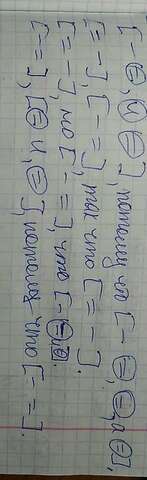 [ – ⊖, и ⊖ ], потому что [ – ⊖, ⊖ и ⊖ ],
[ = – ], [ – = ] так что [ = – ].
[ = – ], но [ – = ], что [ – ⊖
[ – = ], [ ⊖ и, ⊖ ], потому что [ – = ].